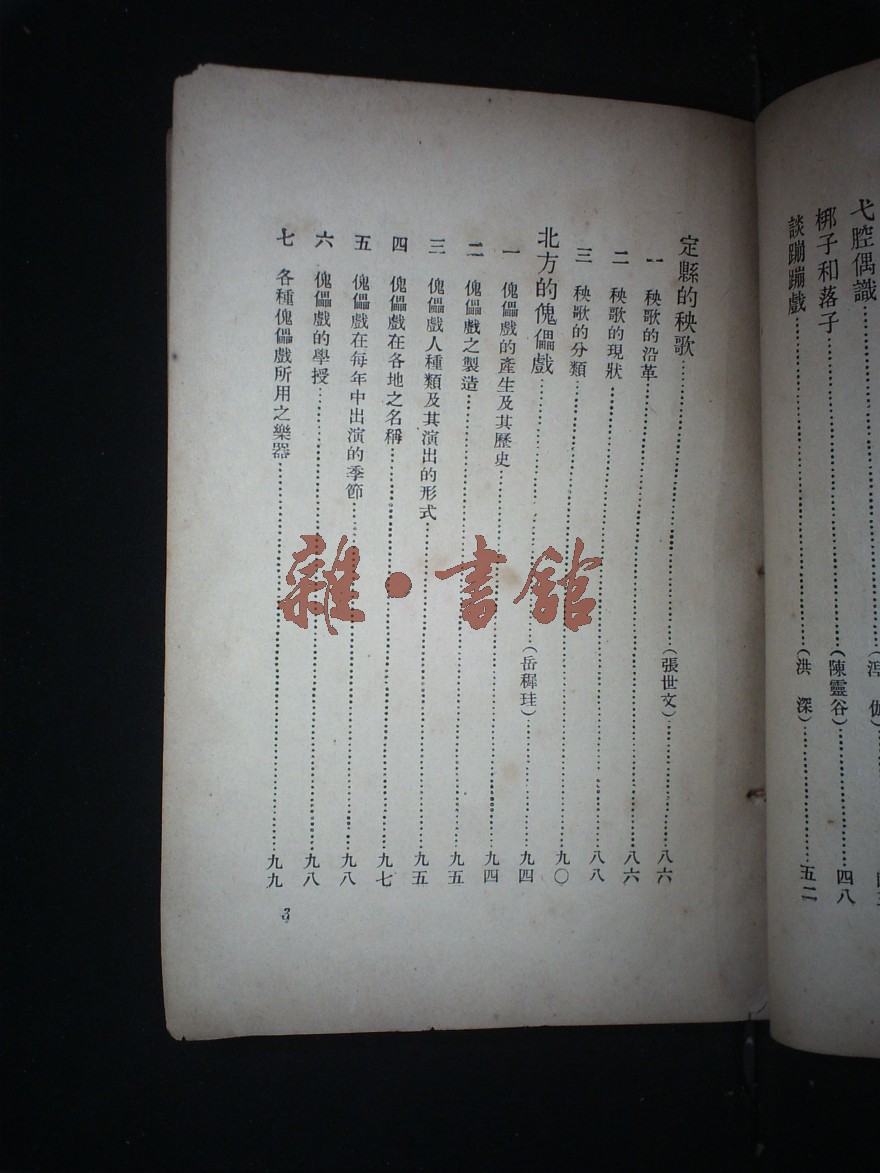 弋腔偶識……（　伽）
梆子和落子……（陳靈谷）……四八
談蹦蹦戲……（洪　深）……五二
定縣的秧歌……（張世文）……八六
一　秧歌的沿革……八六
二　秧歌的現狀……八八
三　秧歌的分類……九〇
北方的傀儡戲……（岳樨珪）……九四
一　傀儡戲的產生及其歷史……九四
二　傀儡戲之製造……九五
三　傀儡戲人種類及其演出的形式……九五
四　傀儡戲在各地之名稱……九七
五　傀儡戲在每年中出演的季節……九八
六　傀儡戲的學授……九八
七　各種傀儡戲所用之樂器……九九
3
雜·書館